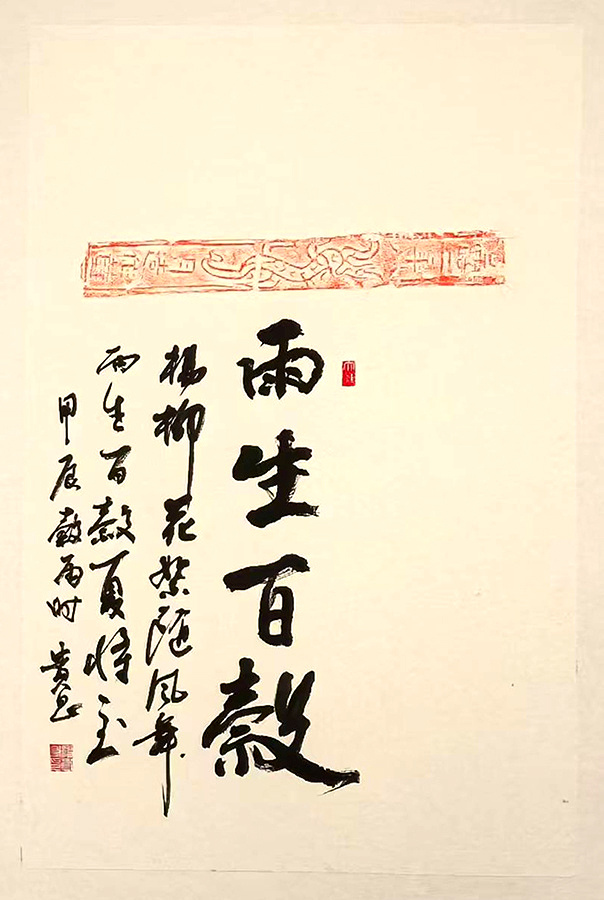 雨生百穀
楊柳花絮隨風舞
雨生百穀夏將至
甲辰穀雨时